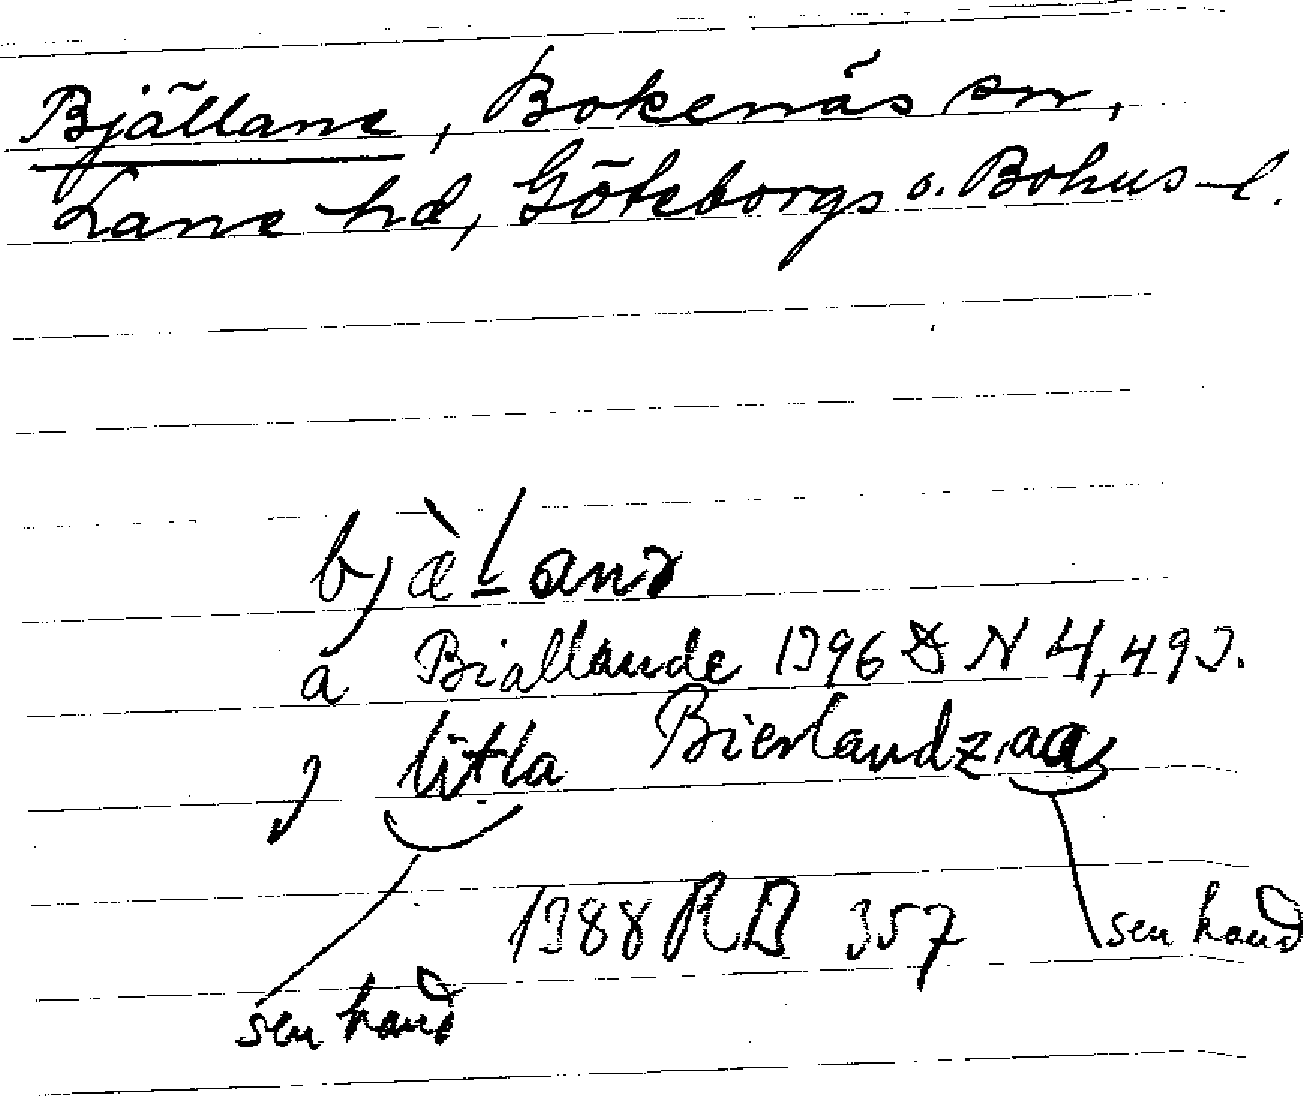 Bjällane, Bokenäs sn,
Lane hd, Göteborgs o. Bohus l.
bjæ̀l̲anə
a Biallande 1396 DN 4,493.
j litla Bierlandzaa
1388 RB 357 sen hand
sen hand